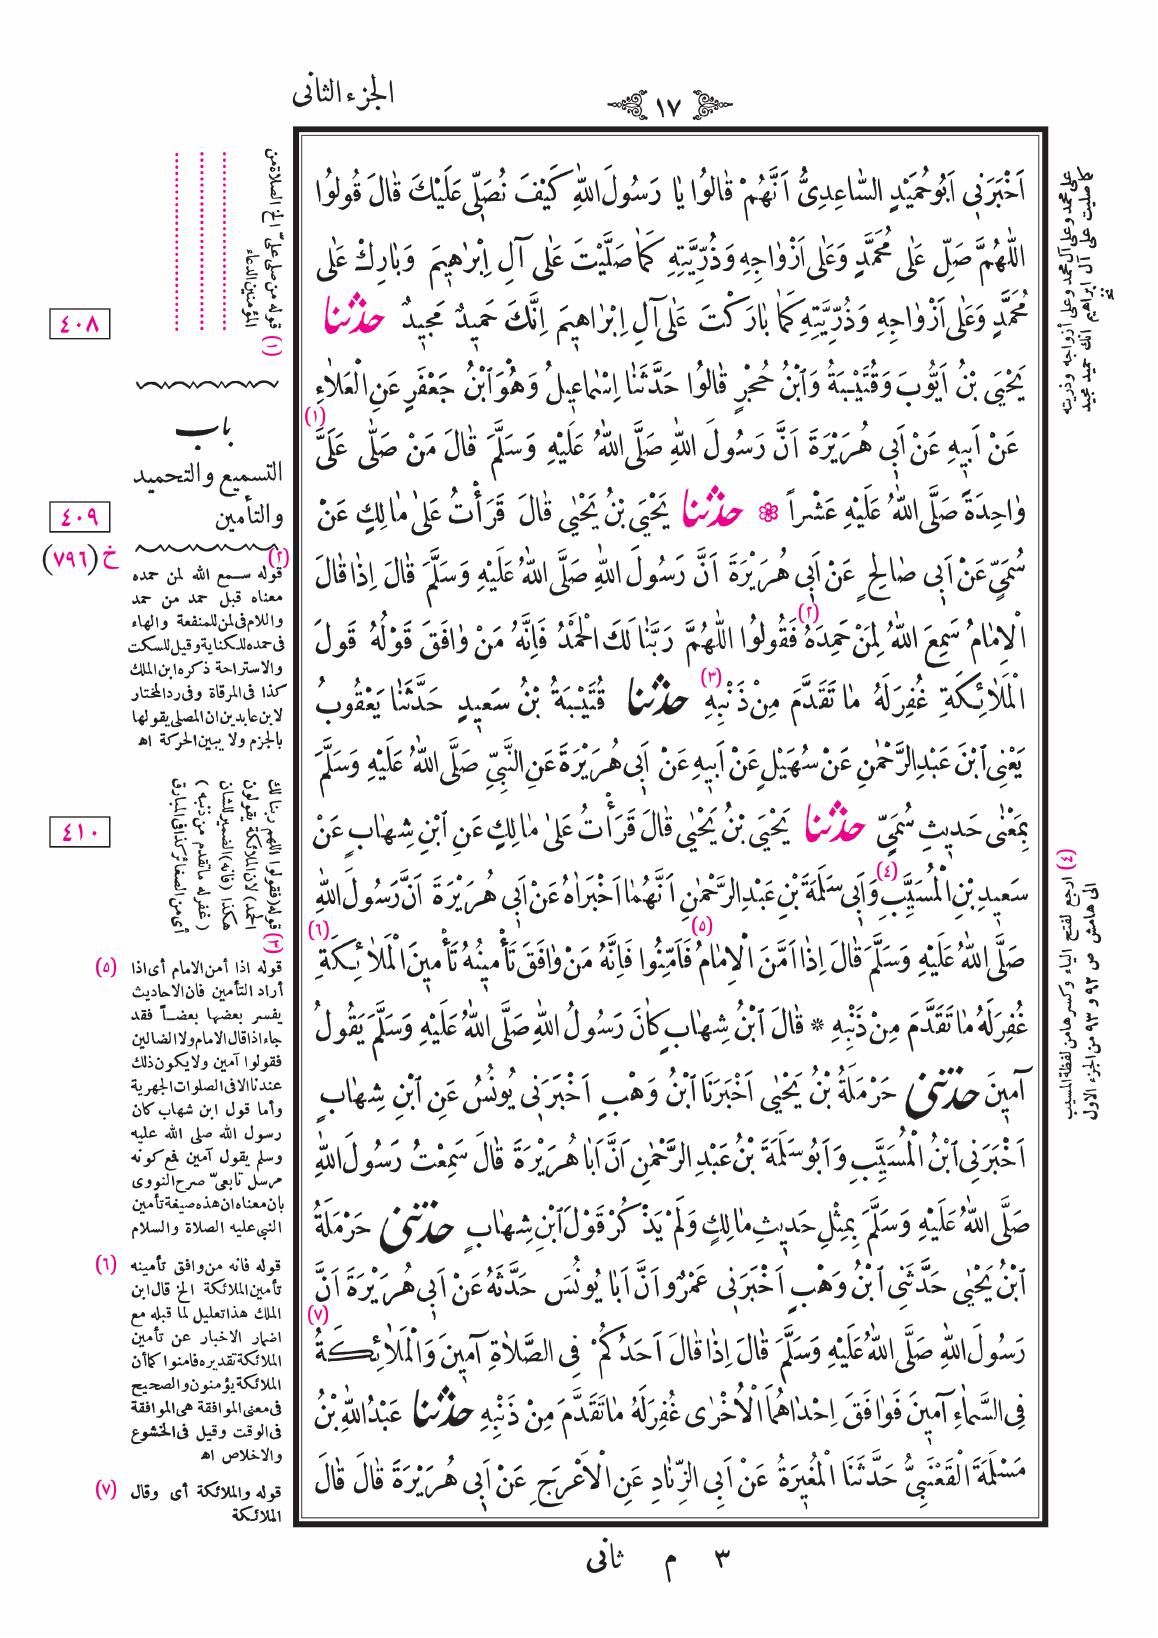 الجزء الثانى
١٧
اَخْبَرَنِى اَبُوحُمَيْدٍ السَّاعِدِىُّ اَنَّهُمْ قَالُوا يَا رَسُولَ اللهِ كَيْفَ نُصَلِّى عَلَيْكَ قَالَ قُولُوا
اَللّٰهُمَّ صَلِّ عَلٰى مُحَمَّدٍ وَعَلٰى اَزْوَاجِهِ وَذُرِّيَّتِهِ كَمَا صَلَّيْتَ عَلٰى آلِ اِبْرٰهِيمَ وَبَارِكْ عَلٰى
مُحَمَّدٍ وَعَلٰى اَزْوَاجِهِ وَذُرِّيَّتِهِ كَمَا بَارَكْتَ عَلٰى آلِ اِبْرَاهِيمَ اِنَّكَ حَمِيدٌ مَجِيدٌ حدثنا
يَحْيَى بْنُ اَيُّوبَ وَقُتَيْبَةُ وَابْنُ حُجْرٍ قَالُوا حَدَّثَنَا اِسْمَاعِيلُ وَهُوَ ابْنُ جَعْفَرٍ عَنِ الْعَلَاءِ
عَنْ اَبِيهِ عَنْ اَبِى هُرَيْرَةَ اَنَّ رَسُولَ اللهِ صَلَّى اللهُ عَلَيْهِ وَسَلَّمَ قَالَ مَنْ صَلَّى عَلَىَّ (١)
وَاحِدَةً صَلَّى اللهُ عَلَيْهِ عَشْراً ❁ حدثنا يَحْيَى بْنُ يَحْيٰى قَالَ قَرَأْتُ عَلٰى مَالِكٍ عَنْ
سُمَىٍّ عَنْ اَبِى صَالِحٍ عَنْ اَبِى هُرَيْرَةَ اَنَّ رَسُولَ اللهِ صَلَّى اللهُ عَلَيْهِ وَسَلَّمَ قَالَ اِذَا قَالَ
الْاِمَامُ سَمِعَ اللهُ لِمَنْ حَمِدَهُ (٢) فَقُولُوا اَللّٰهُمَّ رَبَّنَا لَكَ الْحَمْدُ فَاِنَّهُ مَنْ وَافَقَ قَوْلُهُ قَوْلَ
الْمَلَائِكَةِ غُفِرَلَهُ مَا تَقَدَّمَ مِنْ ذَنْبِهِ (٣) حدثنا قُتَيْبَةُ بْنُ سَعِيدٍ حَدَّثَنَا يَعْقُوبُ
يَعْنِى ابْنَ عَبْدِالرَّحْمٰنِ عَنْ سُهَيْلٍ عَنْ اَبِيهِ عَنْ اَبِى هُرَيْرَةَ عَنِ النَّبِىِّ صَلَّى اللهُ عَلَيْهِ وَسَلَّمَ
بِمَعْنٰى حَدِيثِ سُمَىٍّ حدثنا يَحْيَى بْنُ يَحْيٰى قَالَ قَرَأْتُ عَلٰى مَالِكٍ عَنِ ابْنِ شِهَابٍ عَنْ
سَعِيدِ بْنِ الْمُسَيَّبِ (٤) وَاَبِى سَلَمَةَ بْنِ عَبْدِالرَّحْمٰنِ اَنَّهُمَا اَخْبَرَاهُ عَنْ اَبِى هُرَيْرَةَ اَنَّ رَسُولَ اللهِ
صَلَّى اللهُ عَلَيْهِ وَسَلَّمَ قَالَ اِذَا اَمَّنَ الْاِمَامُ (٥) فَاَمِّنُوا فَاِنَّهُ مَنْ وَافَقَ تَأْمِينُهُ تَأْمِينَ الْمَلَائِكَةِ (٦)
غُفِرَلَهُ مَا تَقَدَّمَ مِنْ ذَنْبِهِ * قَالَ ابْنُ شِهَابٍ كَانَ رَسُولُ اللهِ صَلَّى اللهُ عَلَيْهِ وَسَلَّمَ يَقُولُ
آمِينَ حدثنى حَرْمَلَةُ بْنُ يَحْيٰى اَخْبَرَنَا ابْنُ وَهْبٍ اَخْبَرَنِى يُونُسُ عَنِ ابْنِ شِهَابٍ
اَخْبَرَنِى ابْنُ الْمُسَيَّبِ وَاَبُوسَلَمَةَ بْنُ عَبْدِ الرَّحْمٰنِ اَنَّ اَبَا هُرَيْرَةَ قَالَ سَمِعْتُ رَسُولَ اللهِ
صَلَّى اللهُ عَلَيْهِ وَسَلَّمَ بِمِثْلِ حَدِيثِ مَالِكٍ وَلَمْ يَذْكُرْ قَوْلَ ابْنِ شِهَابٍ حدثنى حَرْمَلَةُ
ابْنُ يَحْيٰى حَدَّثَنِى ابْنُ وَهْبٍ اَخْبَرَنِى عَمْرٌو اَنَّ اَبَا يُونُسَ حَدَّثَهُ عَنْ اَبِى هُرَيْرَةَ اَنَّ
رَسُولَ اللهِ صَلَّى اللهُ عَلَيْهِ وَسَلَّمَ قَالَ اِذَا قَالَ اَحَدُكُمْ فِى الصَّلَاةِ آمِينَ وَالْمَلَائِكَةُ (٧)
فِى السَّمَاءِ آمِينَ فَوَافَقَ اِحْدَاهُمَا الْاُخْرٰى غُفِرَلَهُ مَا تَقَدَّمَ مِنْ ذَنْبِهِ حدثنا عَبْدُ اللهِ بْنُ
مَسْلَمَةَ الْقَعْنَبِىُّ حَدَّثَنَا الْمُغِيرَةُ عَنْ اَبِى الزِّنَادِ عَنِ الْاَعْرَجِ عَنْ اَبِى هُرَيْرَةَ قَالَ قَالَ
على محمد وعلى آل محمد وعلى أزواجه وذريته
كما صليت على آل ابراهيم انك حميد مجيد
نخ
(٤) ارجع لفتح الياء وكسرها من لفظة المسيب
الى هامش ص ٩٢ و ٩٣ من الجزء الاول
(١) قوله من صلى علىّ الخ الصلاة من
المؤمنين الدعاء
٤٠٨
باب
التسميع والتحميد
والتأمين
٤٠٩
خ (٧٩٦)
(٢)
قوله سمع الله لمن حمده
معناه قبل حمد من حمد
واللام فى لمن للمنفعة والهاء
فى حمده للكناية وقيل للسكت
والاستراحة ذكره ابن الملك
كذا فى المرقاة وفى رد المختار
لابن عابدين ان المصلى يقولها
بالجزم ولا يبين الحركة اه
(٣) قوله (فقولوا اللهم ربنا لك
الحمد) لان الملائكة يقولون
هكذا (فانه) الضمير للشان
(غفر له ماتقدم من ذنبه)
أى من الصغائر كذا فى المبارق
٤١٠
(٥) قوله اذا أمن الامام أى اذا
أراد التأمين فان الاحاديث
يفسر بعضها بعضاً فقد
جاء اذا قال الامام ولا الضالين
فقولوا آمين ولا يكون ذلك
عندنا الا فى الصلوات الجهرية
وأما قول ابن شهاب كان
رسول الله صلى الله عليه
وسلم يقول آمين فمع كونه
مرسل تابعىّ صرح النووى
بان معناه ان هذه صيغة تأمين
النبى عليه الصلاة والسلام
(٦) قوله فانه من وافق تأمينه
تأمين الملائكة الخ قال ابن
الملك هذا تعليل لما قبله مع
اضمار الاخبار عن تأمين
الملائكة تقديره فامنوا كما أن
الملائكة يؤمنون والصحيح
فى معنى الموافقة هى الموافقة
فى الوقت وقيل فى الخشوع
والاخلاص اه
(٧) قوله والملائكة أى وقال
الملائكة
٣ م ثانى